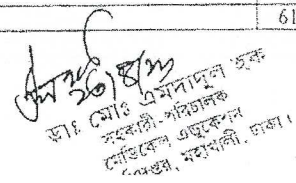 61
ডাঃ মোঃ এমদাদুল হক
সহকারী পরিচালক
মেডিকেল এডুকেশন
মহাখালী, ঢাকা।